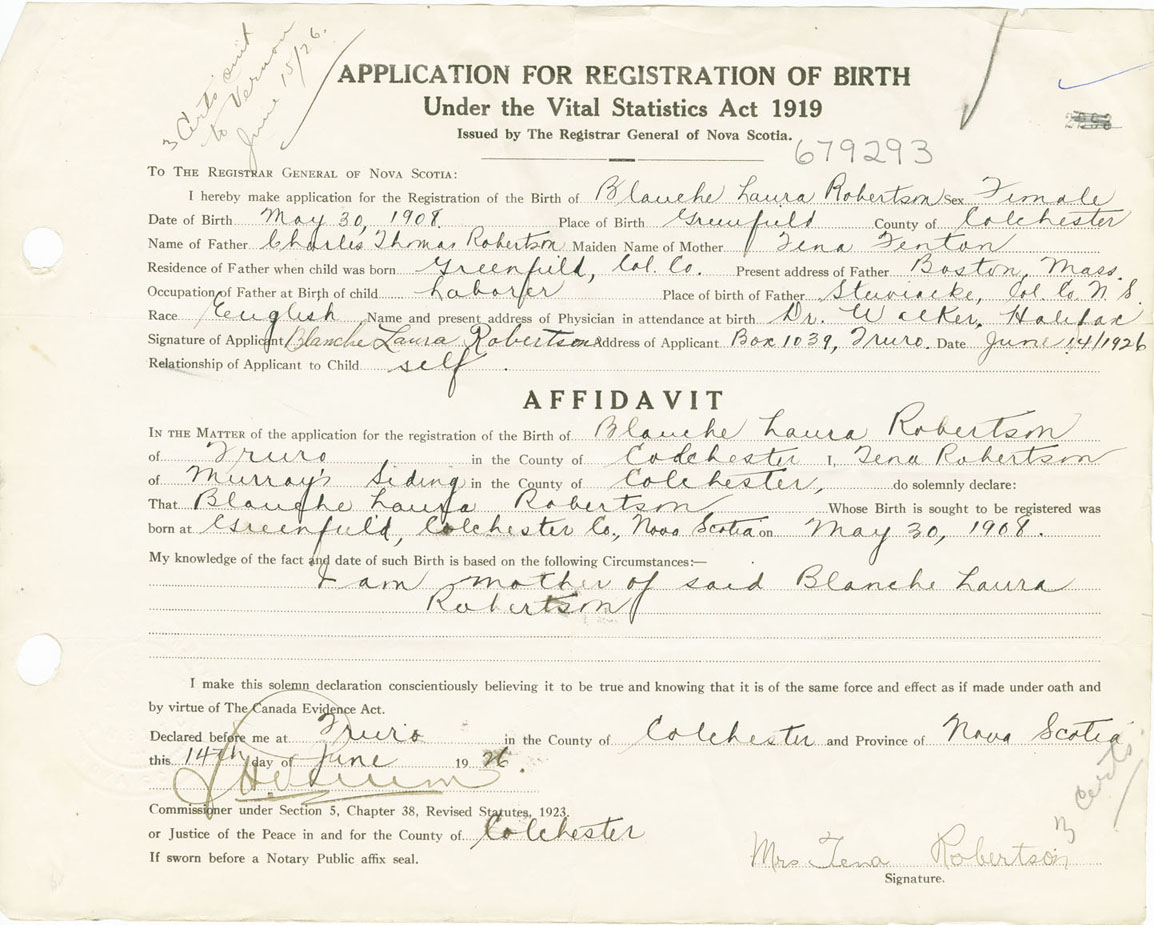 3 Certs sent
to Vernon
June 15/26.
APPLICATION FOR REGISTRATION OF BIRTH
Under the Vital Statistics Act 1919
Issued by The Registrar General of Nova Scotia.
679293
TO THE REGISTRAR GENERAL OF NOVA SCOTIA:
I hereby make application for the Registration of the Birth of Blanche Laura Robertson Sex Female
Date of Birth May 30, 1908. Place of Birth Greenfield County of Colchester
Name of Father Charles Thomas Robertson Maiden Name of Mother Tena Fenton
Residence of Father when child was born Greenfield, Col. Co. Present address of Father Boston, Mass.
Occupation of Father at Birth of child Laborer Place of birth of Father Stewiacke, Col. Co. N.S.
Race English Name and present address of Physician in attendance at birth Dr. Walker, Halifax
Signature of Applicant Blanche Laura Robertson Address of Applicant Box 1039, Truro. Date June 14/1926
Relationship of Applicant to Child self.
AFFIDAVIT
IN THE MATTER of the application for the registration of the Birth of Blanche Laura Robertson
of Truro in the County of Colchester I, Tena Robertson
of Murray's Siding in the County of Colchester, do solemnly declare:
That Blanche Laura Robertson Whose Birth is sought to be registered was
born at Greenfield, Colchester Co., Nova Scotia on May 30, 1908.
My knowledge of the fact and date of such Birth is based on the following Circumstances:—
I am mother of said Blanche Laura
Robertson
I make this solemn declaration conscientiously believing it to be true and knowing that it is of the same force and effect as if made under oath and
by virtue of The Canada Evidence Act.
Declared before me at Truro in the County of Colchester and Province of Nova Scotia
this 14th day of June 1926.
Commissioner under Section 5, Chapter 38, Revised Statutes, 1923.
or Justice of the Peace in and for the County of Colchester
If sworn before a Notary Public affix seal.
3 certs.
Mrs Tena Robertson
Signature.